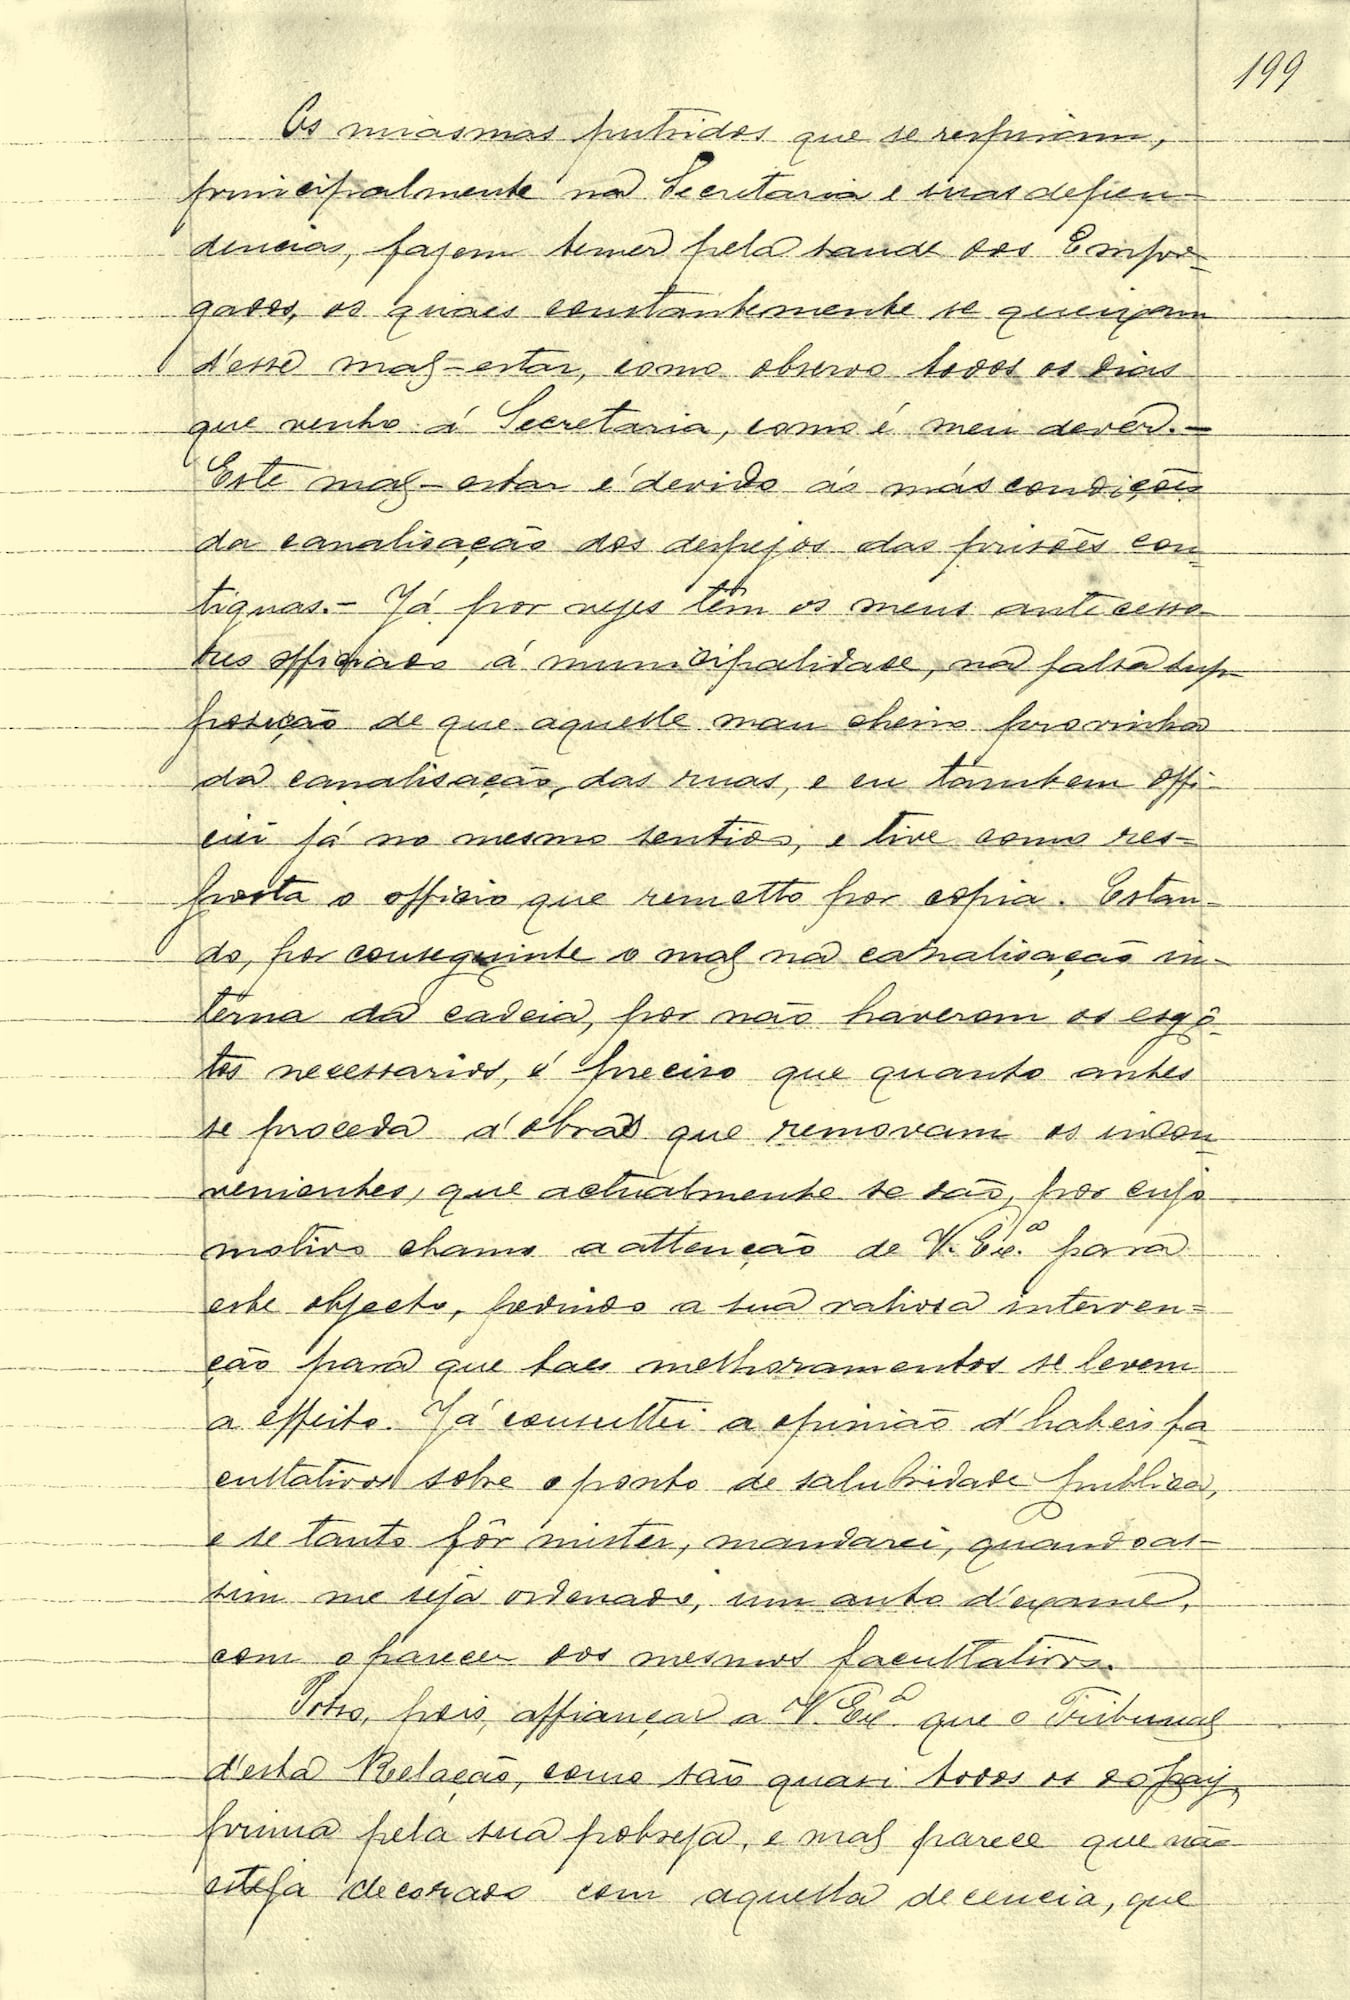 199
Os miasmas putridos que se respiram,
principalmente na Secretaria e suas depen-
dencias, fazem temer pela saude dos Empre-
gados, os quaes constantemente se queixam
d'esse mal-estar, como observo todos os dias
que venho á Secretaria, como é meu dever.-
Este mal-estar é devido ás más condições
da canalisação dos despejos das prisões con-
tiguas.- Já por vezes têm os meus antecesso-
res officiado á municipalidade, na falsa sup-
posição de que aquelle mau cheiro provinha
da canalisação, das ruas, e eu tambem offi-
ciei já no mesmo sentido, e tive como res=
posta o officio que remetto por copia. Estan-
do, por conseguinte o mal na canalisação in-
terna da cadeia, por não haverem os esgô-
tos necessarios, é preciso que quanto antes
se proceda a' obras que removam os incon-
venientes, que actualmente se dão, por cujo
motivo chamo a attenção de V. Ex.ª para
este objecto, pedindo a sua valiosa interven=
ção para que taes melhoramentos se levem
a effeito. Já consultei a opinião d'habeis fa-
cultativos sobre o ponto de salubridade publica,
e se tanto fôr mister, mandarei, quando as-
sim me seja ordenado, um auto d'exame,
com o parecer dos mesmos facultativos.
Posso, pois, affiançar a V. Ex.ª que o Tribunal
d'esta Relação, como são quasi todos os do paiz,
prima pela sua pobreza, e mal parece que não
esteja decorado com aquella decencia, que